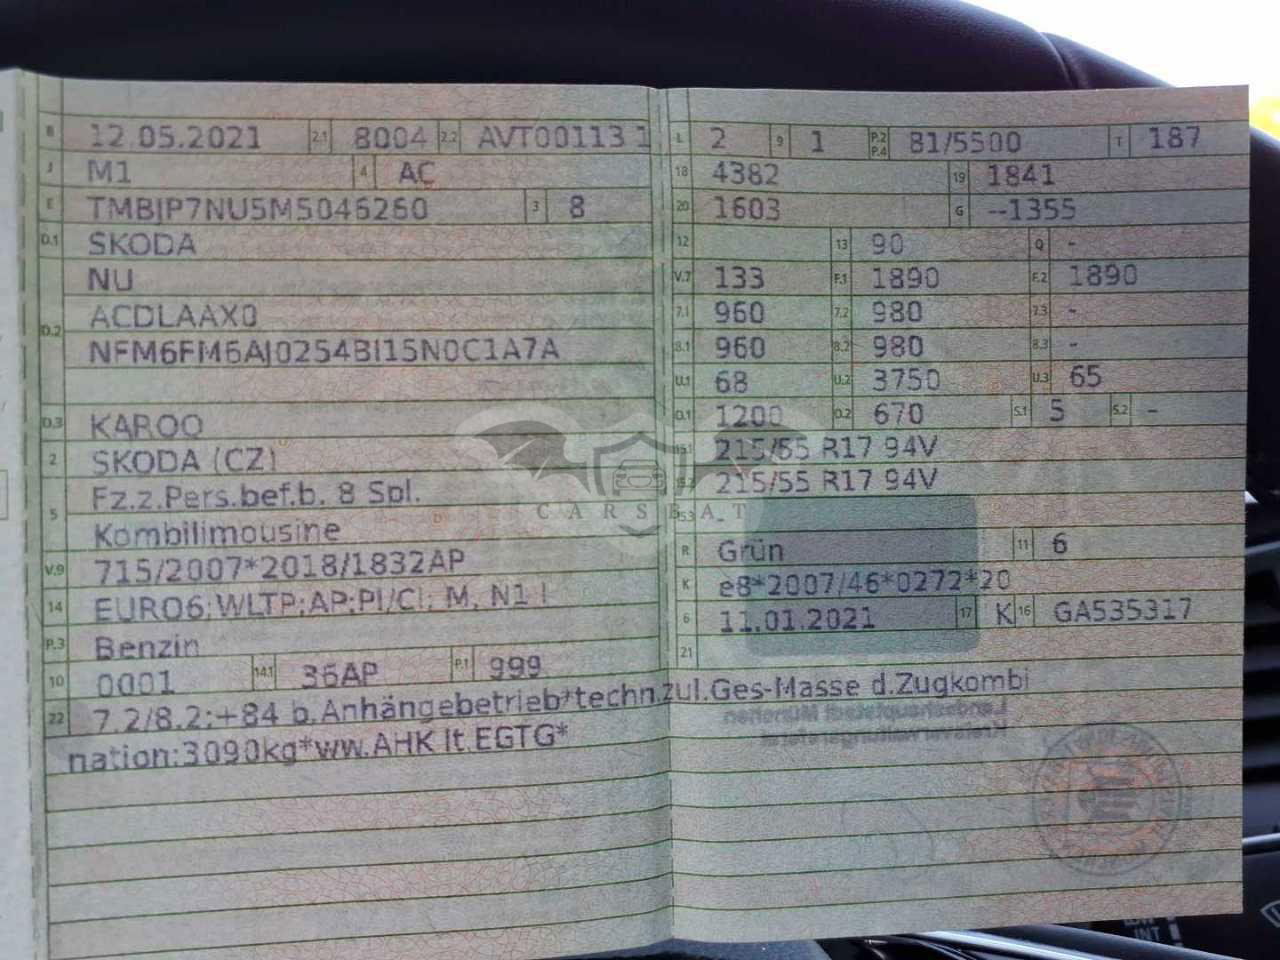 B 12.05.2021 2.1 8004 2.2 AVT00113 1
J M1 4 AC
E TMBJP7NU5M5046260 3 8
D.1 SKODA
NU
D.2 ACDLAAX0
NFM6FM6AJ0254BI15N0C1A7A
D.3 KAROQ
2 SKODA (CZ)
5 Fz.z.Pers.bef.b. 8 Spl.
Kombilimousine
V.9 715/2007*2018/1832AP
14 EURO6;WLTP;AP;PI/CI; M, N1 I
P.3 Benzin
10 0001 14.1 36AP P.1 999
22 7.2/8.2:+84 b.Anhängebetrieb*techn.zul.Ges-Masse d.Zugkombi
nation:3090kg*ww.AHK lt.EGTG*
L 2 9 1 P.2 P.4 81/5500 T 187
18 4382 19 1841
20 1603 G --1355
12 13 90 Q -
V.7 133 F.1 1890 F.2 1890
7.1 960 7.2 980 7.3 -
8.1 960 8.2 980 8.3 -
U.1 68 U.2 3750 U.3 65
O.1 1200 O.2 670 S.1 5 S.2 -
15.1 215/55 R17 94V
15.2 215/55 R17 94V
15.3 -
R Grün 11 6
K e8*2007/46*0272*20
6 11.01.2021 17 K 16 GA535317
21
CARSBAT
INT